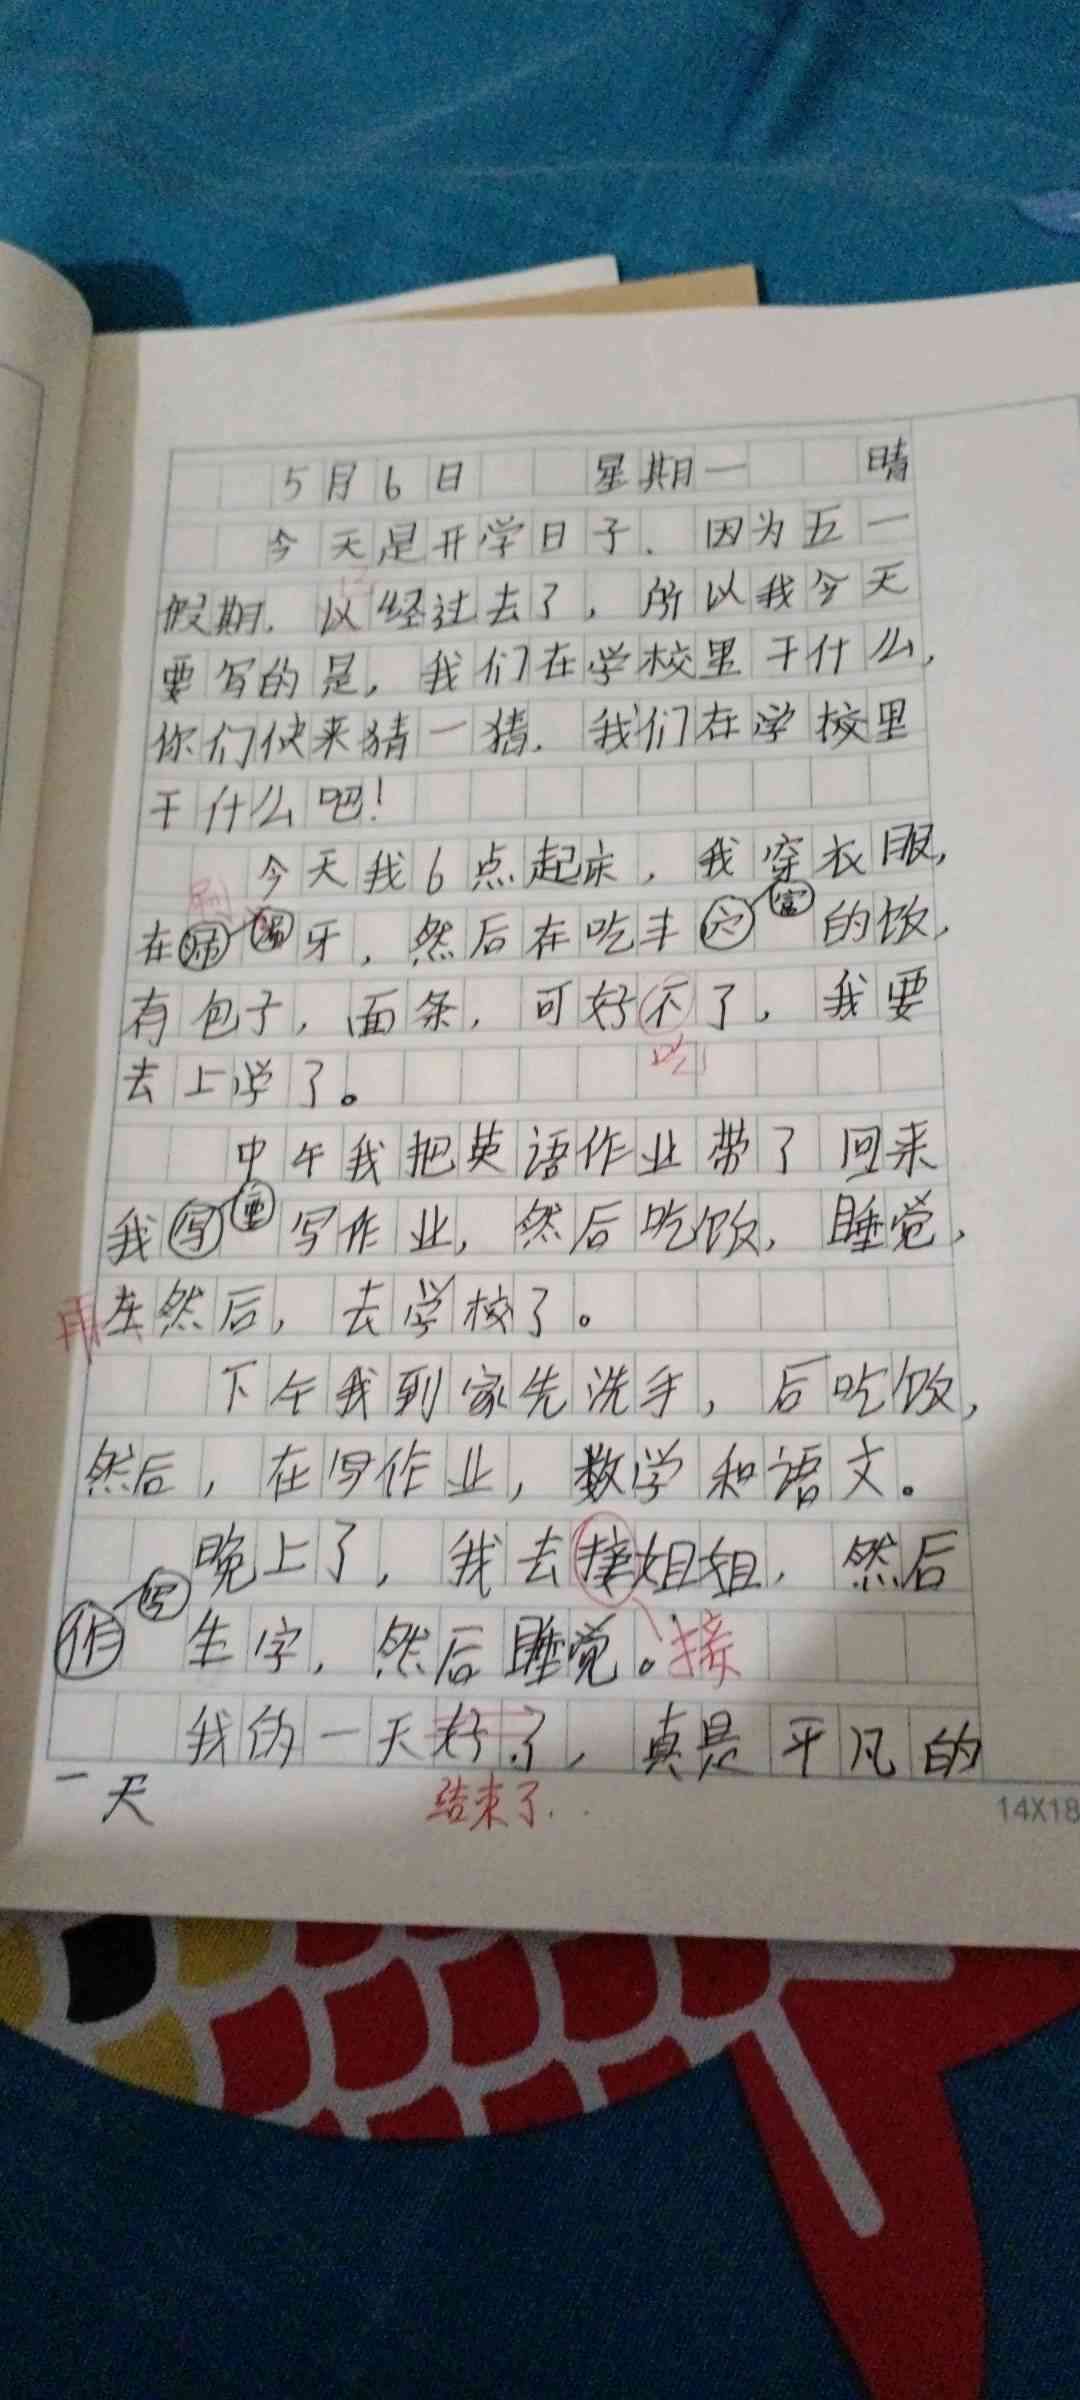 5月6日 星期一 晴
今天是开学日子.因为五一
假期.以经过去了,所以我今天
要写的是,我们在学校里干什么,
你们快来猜一猜.我们在学校里
干什么吧!
今天我6点起床,我穿衣服,
刷
富
在牙,然后在吃丰的饭,
有包子,面条,可好不了,我要
吃
去上学了。
中午我把英语作业带了回来
要
我写写作业,然后吃饭,睡觉,
再
在然后,去学校了。
下午我到家先洗手,后吃饭,
然后,在写作业,数学和语文。
晚上了,我去接姐姐,然后
写
作生字,然后睡觉。接
我的一天好了,真是平凡的
一天
结束了..
14X18